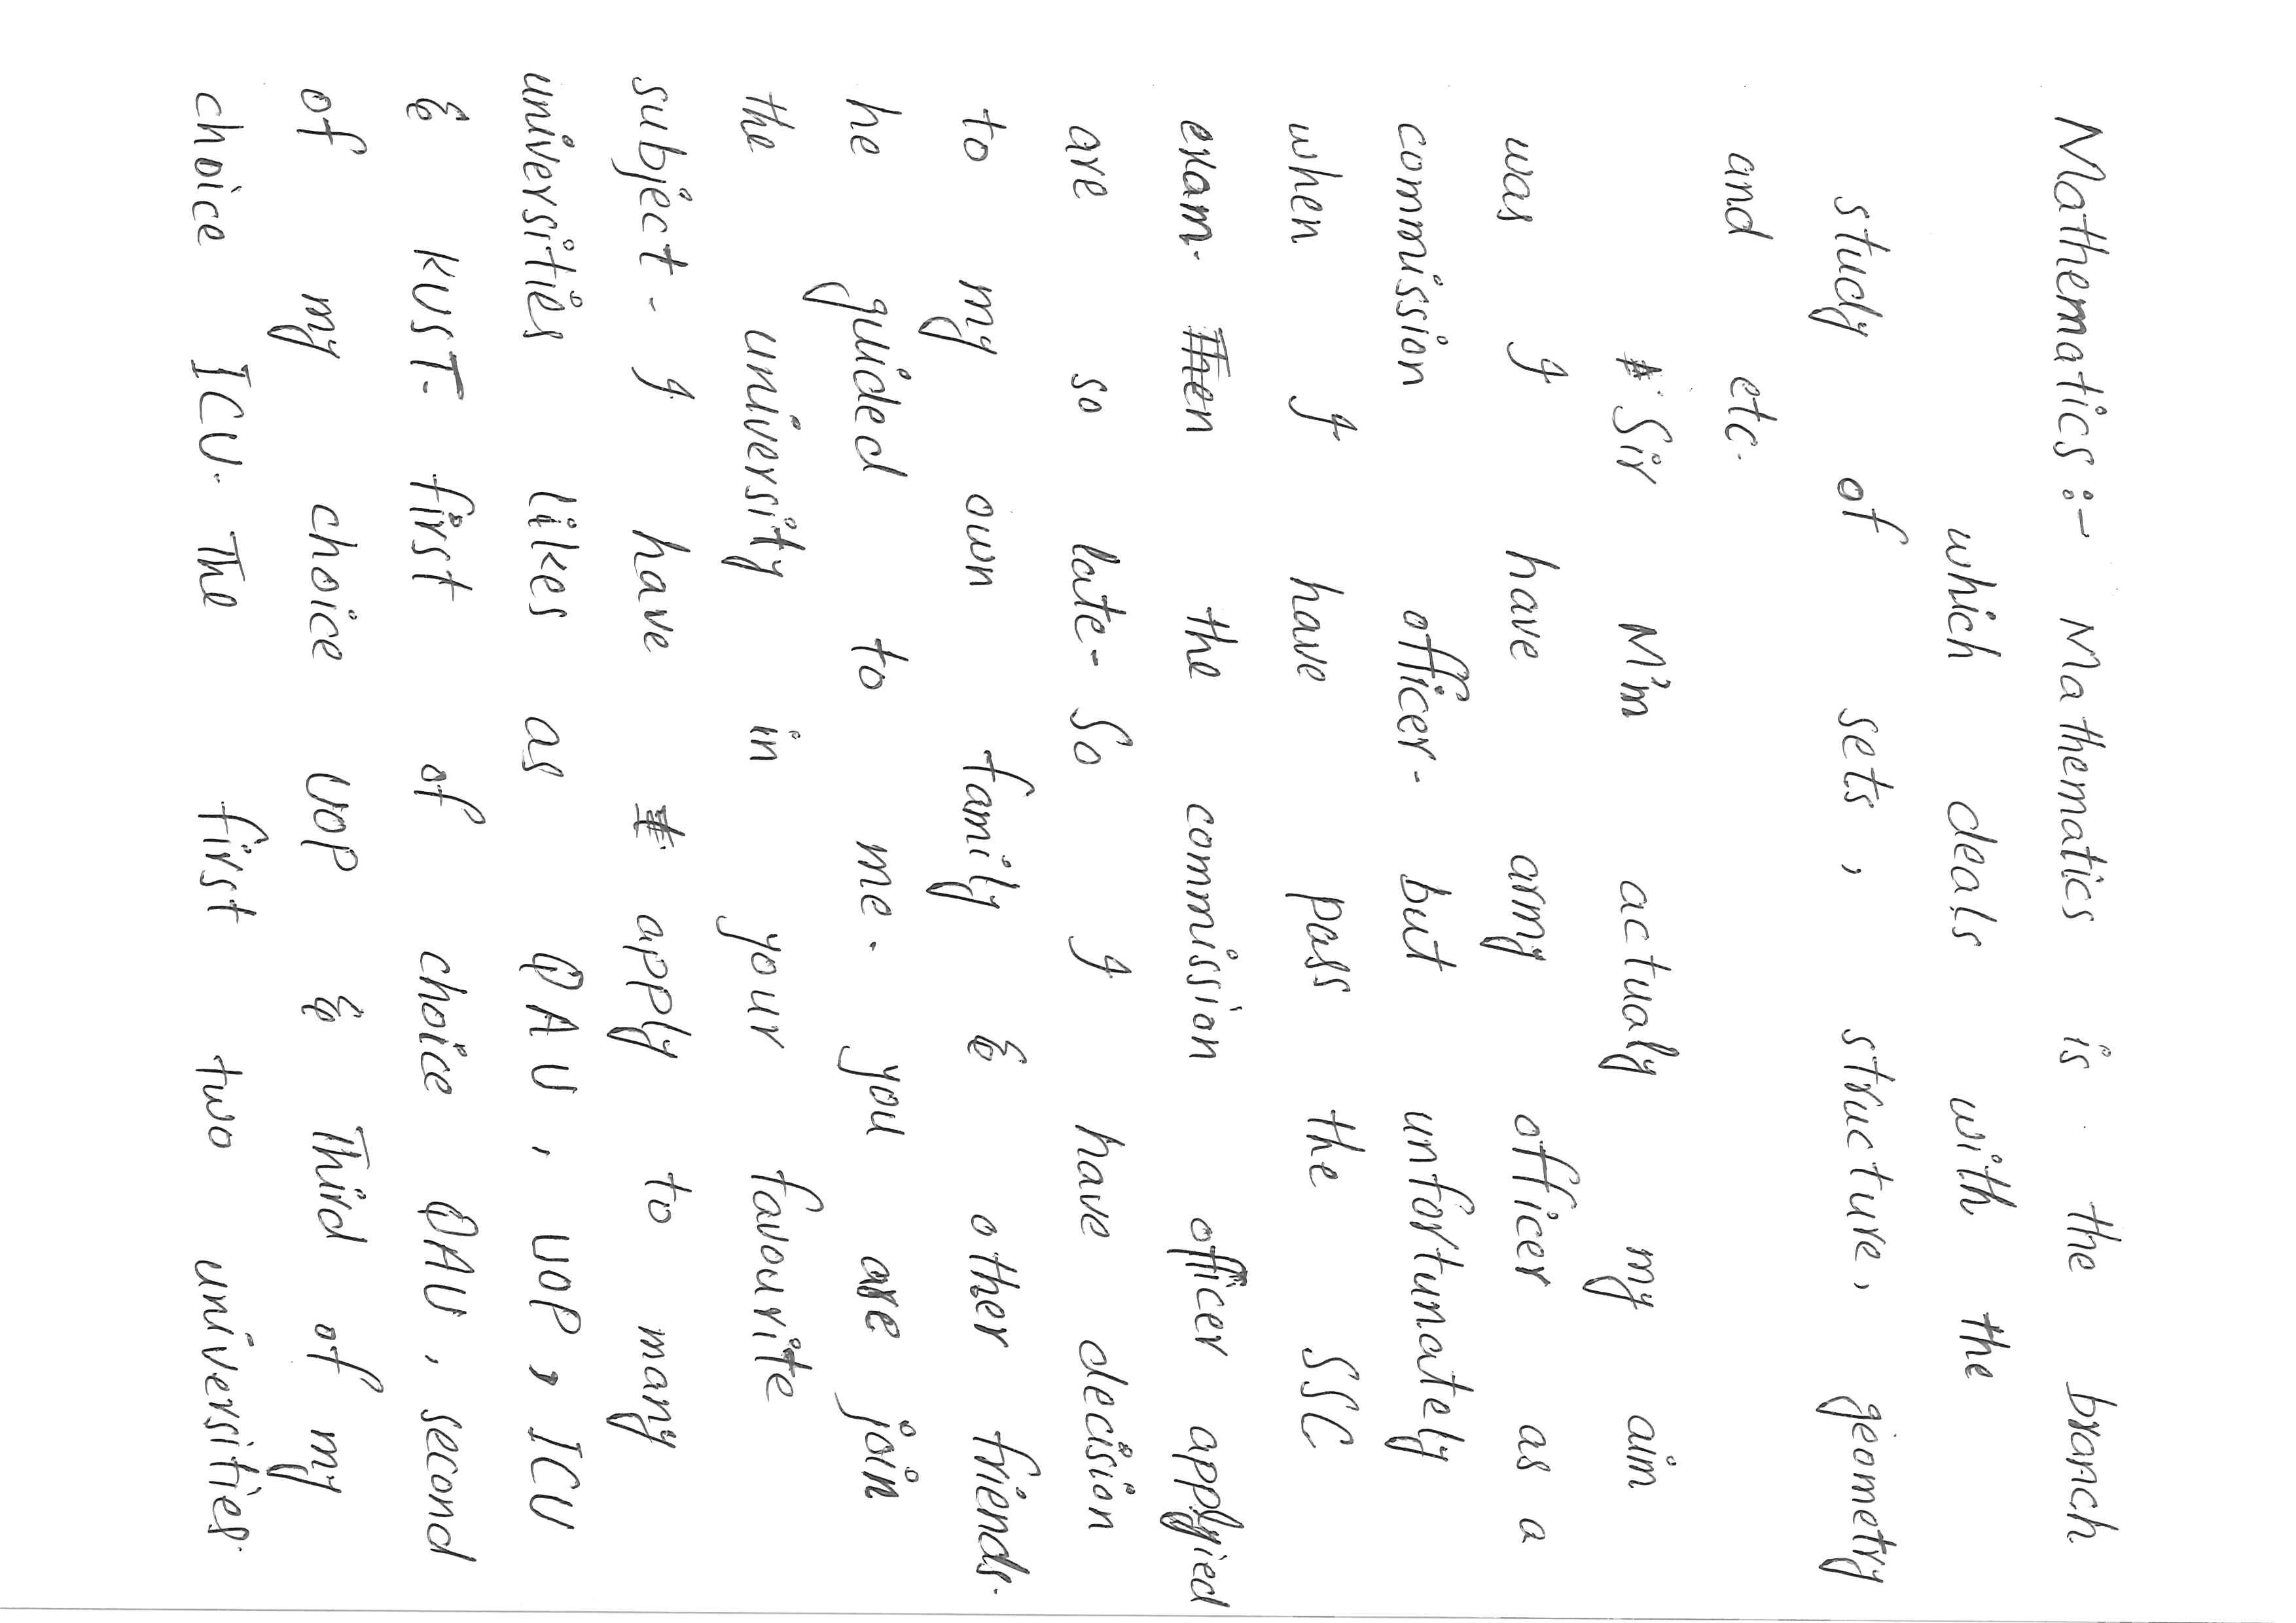 Mathematics :- Mathematics is the branch
which deals with the
study of sets, structure, geometry
and etc.
Sir M'm actualy my aim
was I have army officer as a
commission officer- but unfortunately
when I have pass the SSC
exam. Then the commission officer applyied
are so late- So I have decision
to my own family & other friends.
he guided to me. you are join
the university in your favourite
subject- I have apply to many
universities likes as QAU, UOP, ICU
& KUST- first of choice QAU, second
of my choice UOP & Third of my
choice ICU. The first two universities